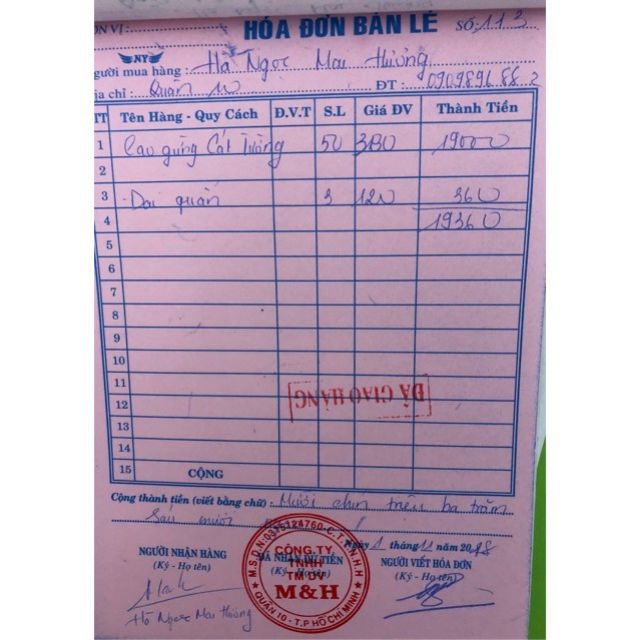 ƠN VỊ : HÓA ĐƠN BÁN LẺ SỐ: 113
NY
gười mua hàng : Hà Ngọc Mai Hương
ịa chỉ : Quận 10 ĐT : 0909896 88 2
TT Tên Hàng - Quy Cách Đ.V.T S.L Giá ĐV Thành Tiền
1 Cao gừng Cát Tường 50 380 19000
2
3 Đai quấn 3 120 360
4 19360
5
6
7
8
9
10
11
ĐÃ GIAO HÀNG
12
13
14
15 CỘNG
Cộng thành tiền (viết bằng chữ) : Mười chín triệu ba trăm
Sáu mươi
Ngày 1 tháng 11 năm 2018
NGƯỜI NHẬN HÀNG ĐÃ NHẬN ĐỦ TIỀN NGƯỜI VIẾT HÓA ĐƠN
(Ký - Họ tên) (Ký - Họ tên) (Ký - Họ tên)
M.S.D.N:0315124760-C.T.T.N.H.H
CÔNG TY
TNHH
TM DV
M&H
QUẬN 10 - T.P HỒ CHÍ MINH
Hà Ngọc Mai Hương